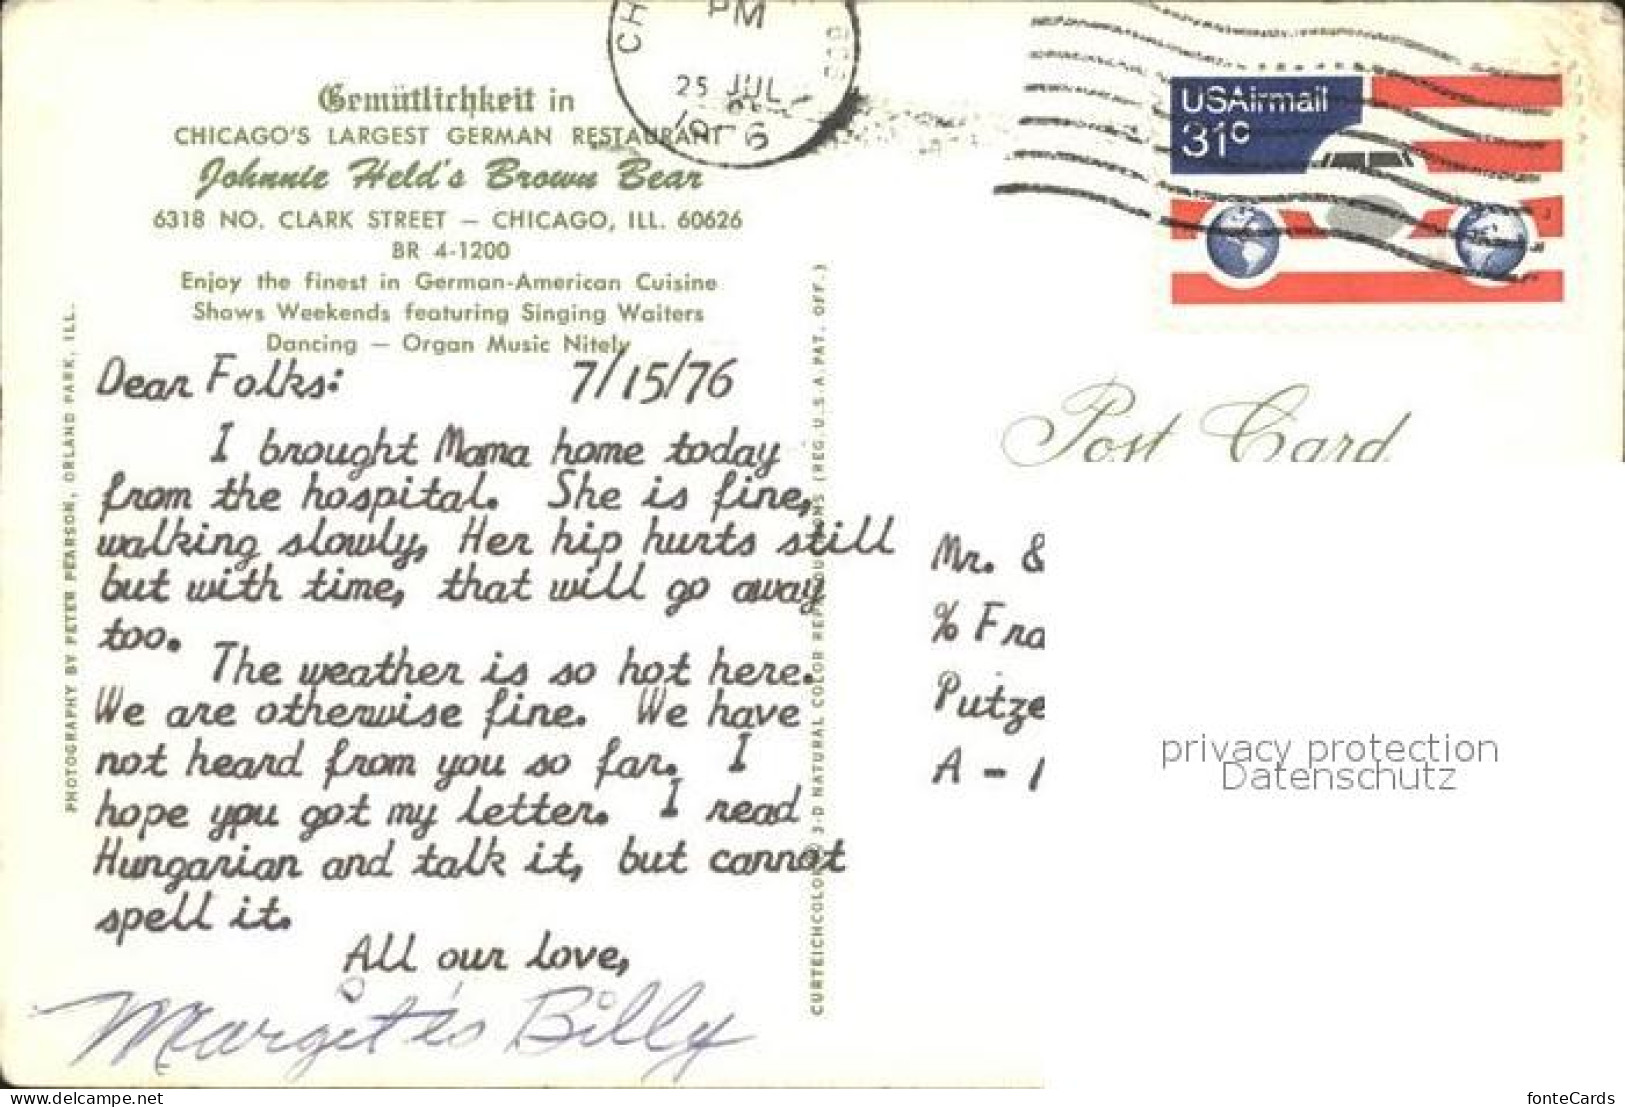 PM
25 JUL
Gemütlichkeit in
CHICAGO'S LARGEST GERMAN RESTAURANT
Johnnie Held's Brown Bear
6318 NO. CLARK STREET — CHICAGO, ILL. 60626
BR 4-1200
Enjoy the finest in German-American Cuisine
Shows Weekends featuring Singing Waiters
Dancing — Organ Music Nitely
USAirmail
31c
Dear Folks: 7/15/76
I brought Mama home today
from the hospital. She is fine,
walking slowly, Her hip hurts still
but with time, that will go away
too.
The weather is so hot here.
We are otherwise fine. We have
not heard from you so far. I
hope you got my letter. I read
Hungarian and talk it, but cannot
spell it.
All our love,
Margit és Billy
PHOTOGRAPHY BY PETER PEARSON, ORLAND PARK, ILL.
CURTEICHCOLOR® 3-D NATURAL COLOR REPRODUCTIONS (REG. U.S.A. PAT. OFF.)
Post Card
Mr. &
% Fra
Putze
A - 1
privacy protection
Datenschutz
www.delcampe.net
fonteCards